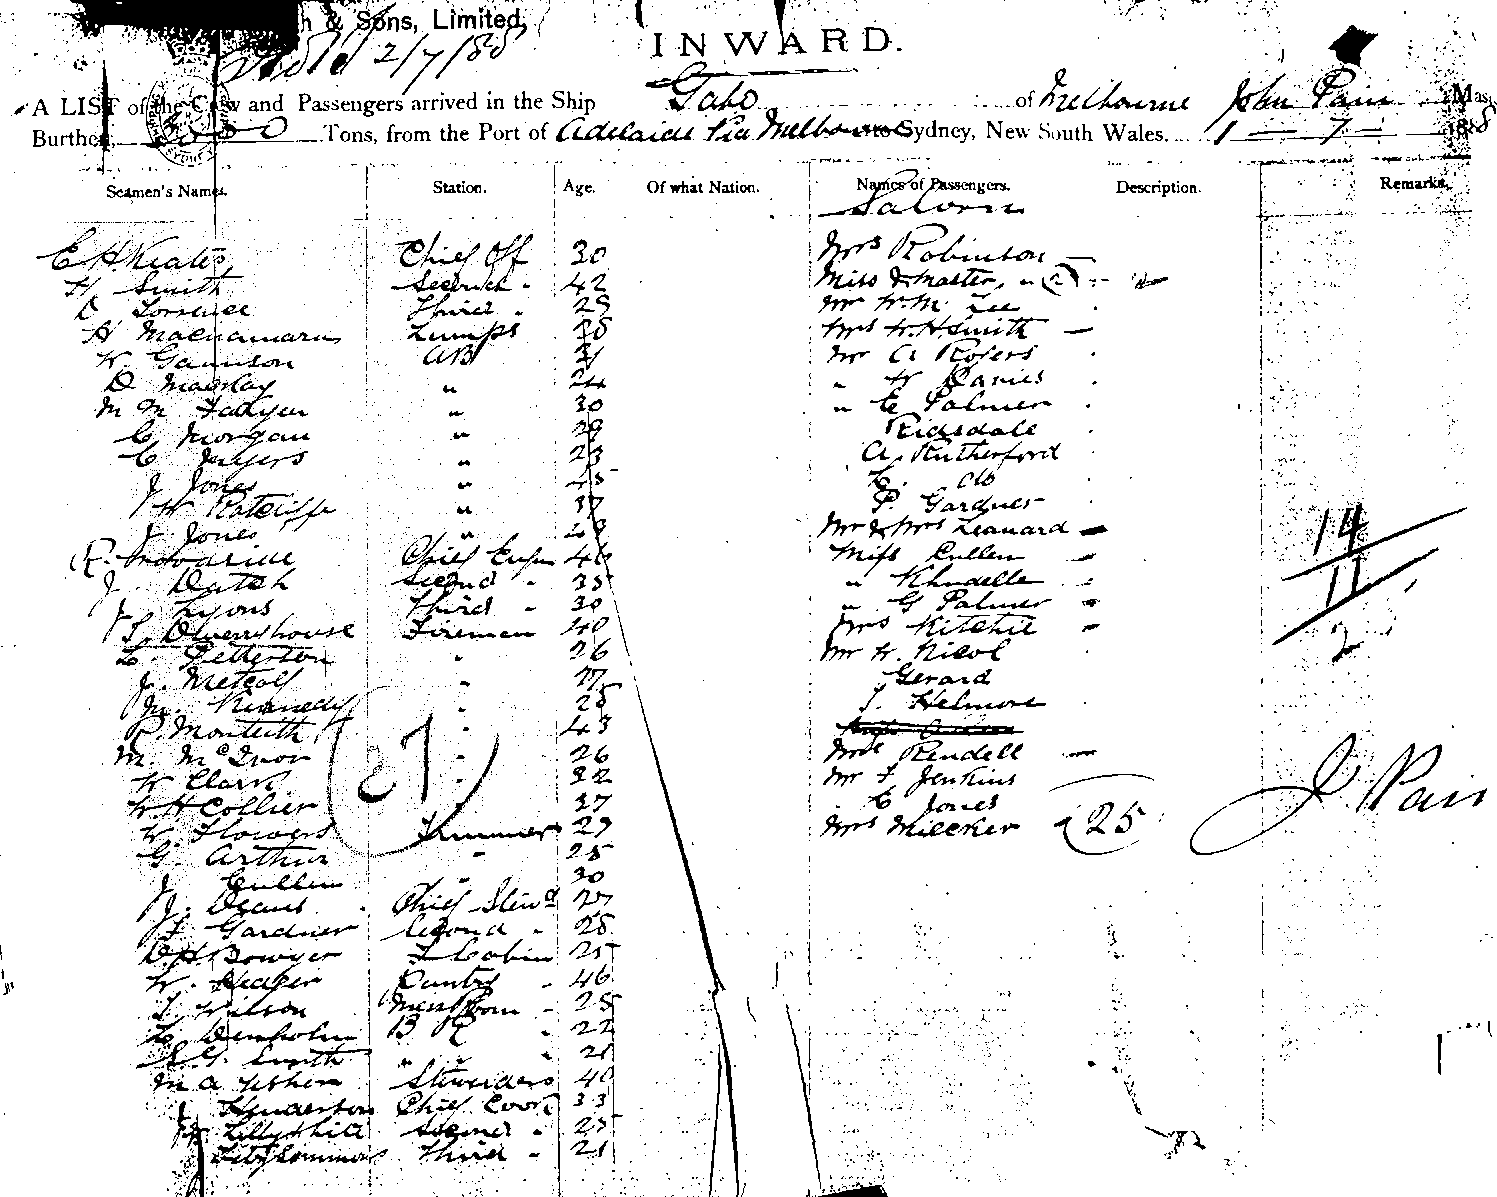 & Sons, Limited,
2/7/88
INWARD.
A LIST of the Crew and Passengers arrived in the Ship Gabo of Melbourne John Pain Mas
Burthen, Tons, from the Port of Adelaide Via Melbourne to Sydney, New South Wales. 1 — 7 — 188
Seamen's Names. Station. Age. Of what Nation. Names of Passengers. Description. Remarks.
Saloon
E H Keates Chief Off 30 Mrs Robinson —
H Smith Second " 42 Miss & Master " (2)
Third " 29 Mr W. M. Lee
H Macnamara Lamps 38 Mrs W. H Smith —
W. Gamison AB 31 Mr A Rogers
D Mackay " 24 " W Davies
M M " 30 " E Palmer
C Morgan " 29 Ridsdale
C Myers " 23 A. Rutherford
J Jones " 45 do
W Ratcliffe " 37 P. Gardner
J Jones " Mr & Mrs Leanard —
R. Chief Engr 46 Miss Cullen —
J. Dutch Second " 35 "
J Lyons Third " 30 " G Palmer
Fireman 40 Mrs Ritchie
Petterson " 26 Mr W. Nicol
J. Metcalf " 27 Gerard
M. Kennedy " 28 J. Helmore
P. Monteith " 43
M. " 26 Mrs Rendell —
W Clark " 22 Mr F Jenkins
W H Collier 37 C Jones
W. Flowers Trimmer 29 Mrs (25
G. Arthur " 25
J Cullen " 30
J. Deans Chief Stewd 27
F Gardner Second " 28
D. H. Bowyer F Cabin 25
W. Pantry " 46
J Wilson Mess Room " 25
Denholm B R " 22
S G. Smith " " " 21
M A Stewardess 40
J Henderson Chief Cook 33
Second " 25
Fitzsimmons Third " 21
37
14
11
2
J Pain